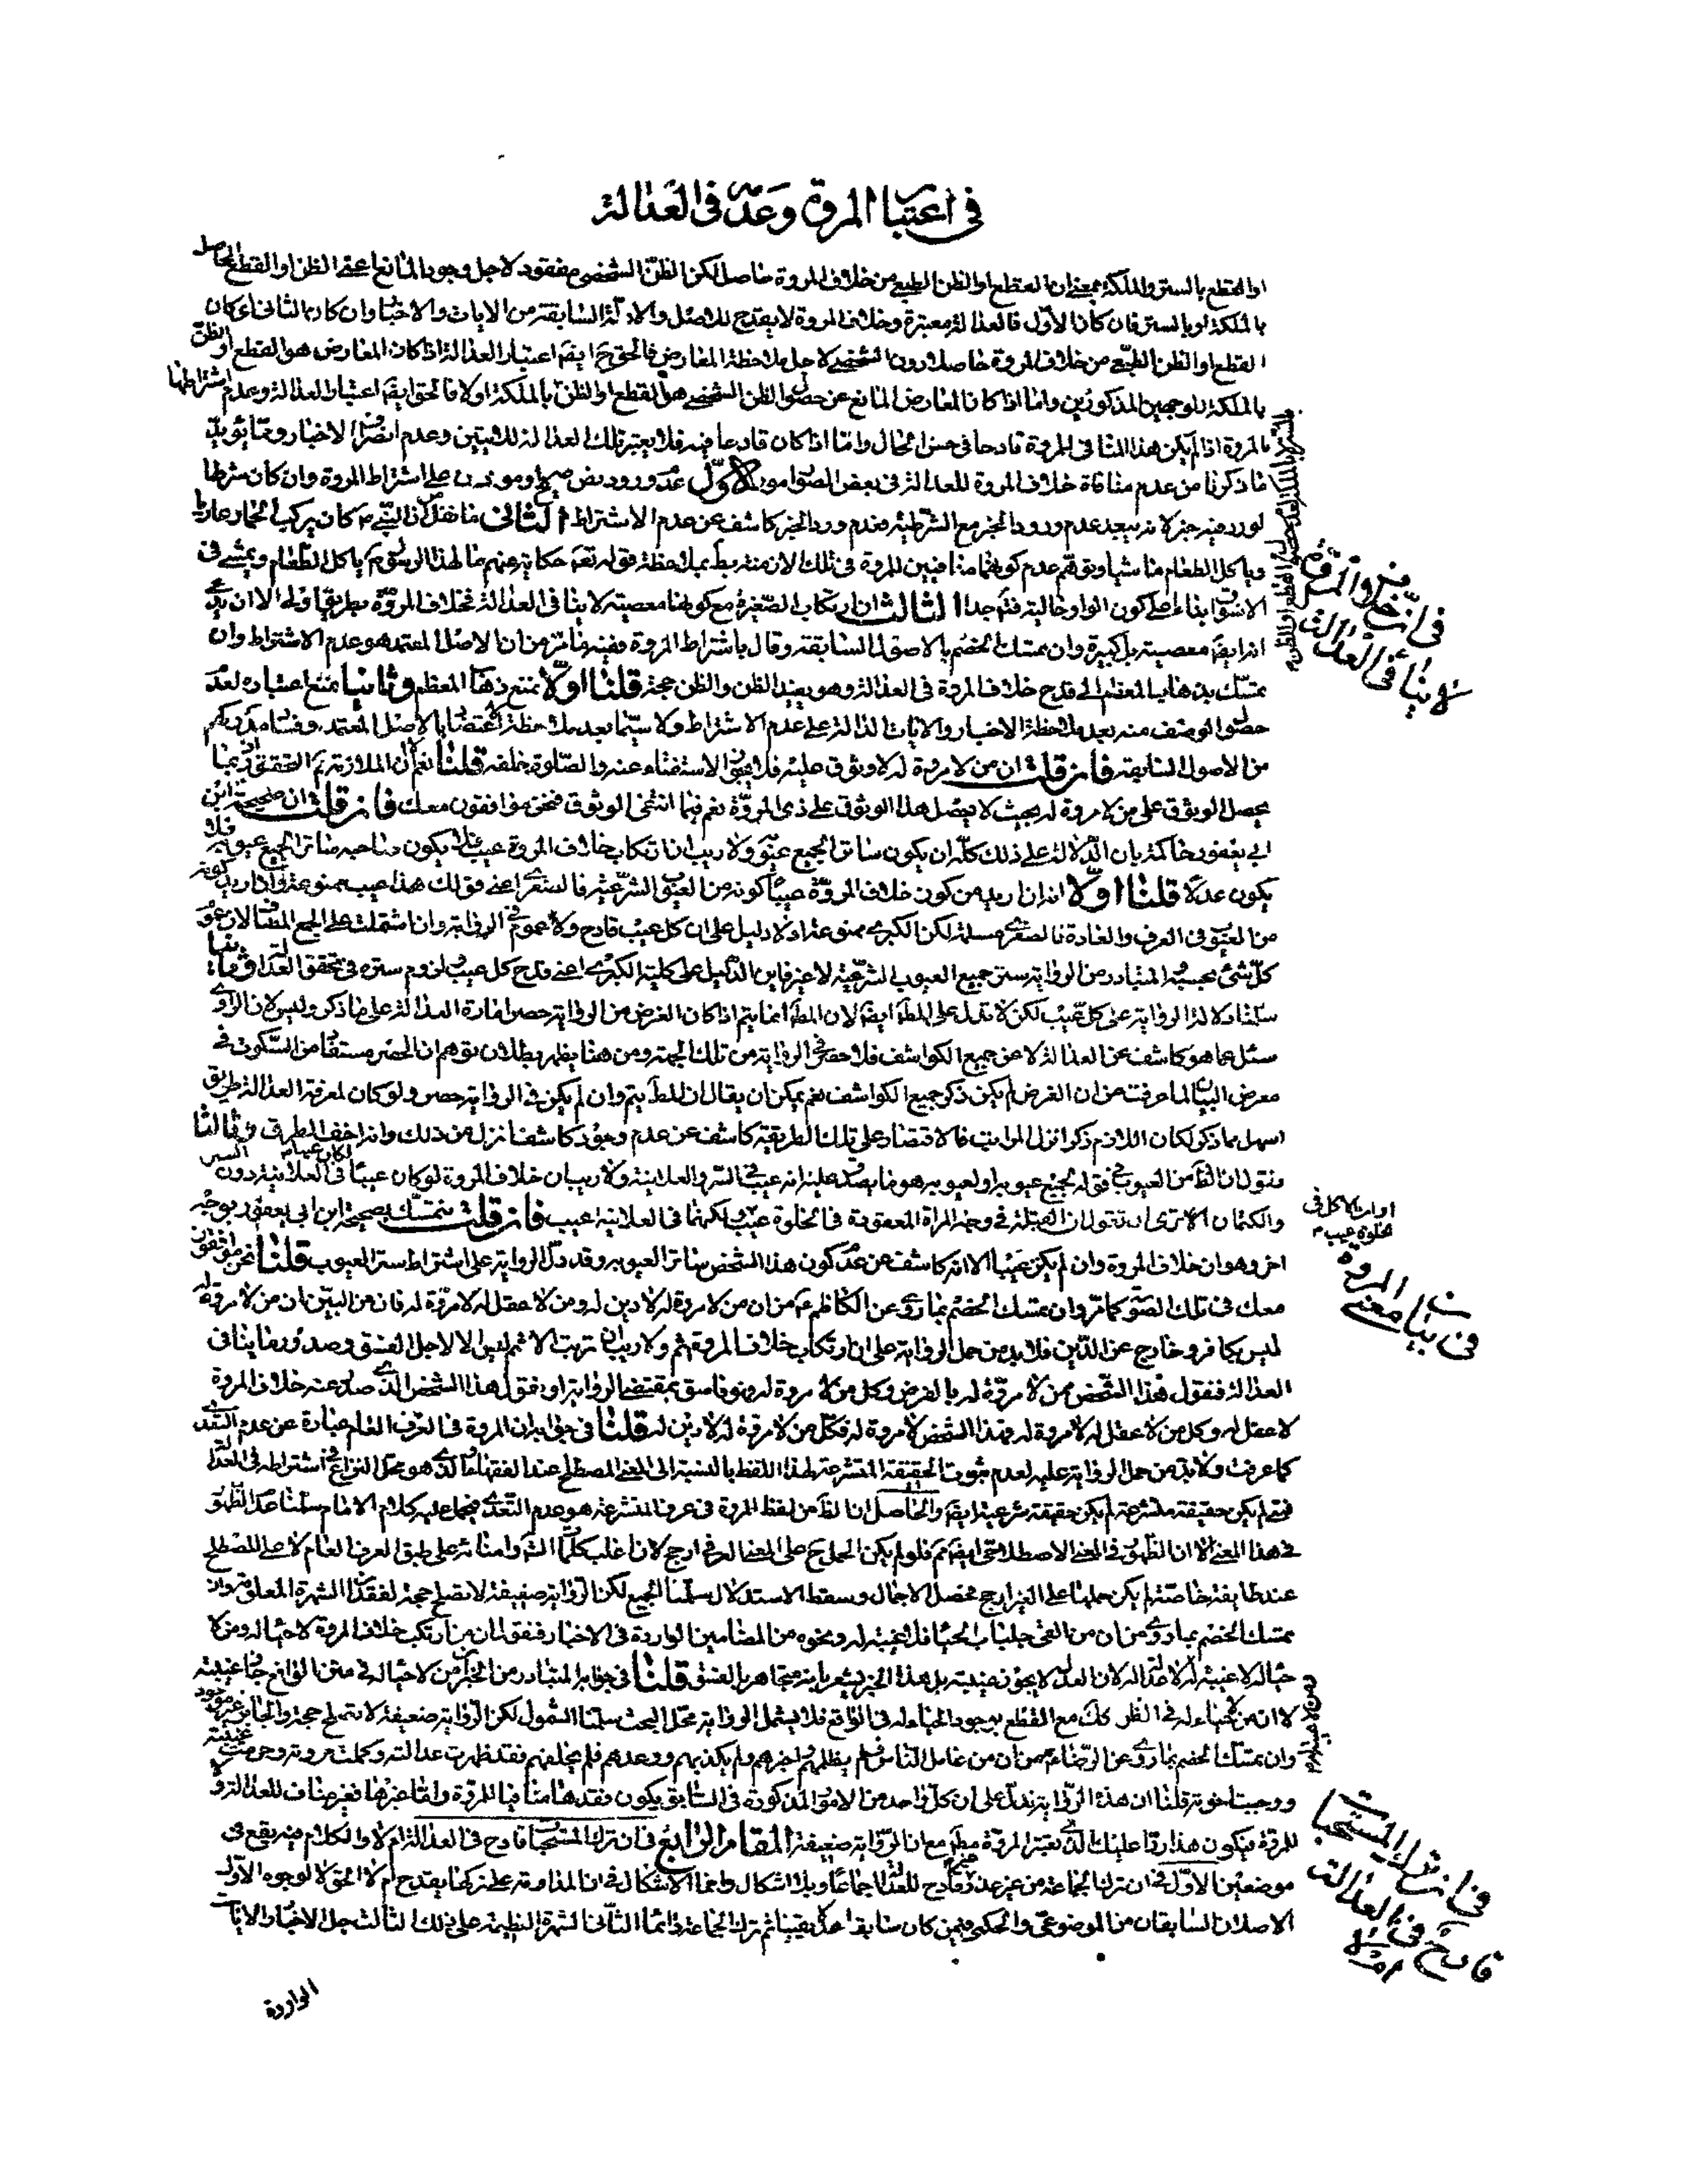 في اعتبار المروة وعدمه في العدالة
او القطع بالستر والملكة بمعنى ان القطع او الظن الطبعي من خلاف المروة حاصل لكن الظن الشخصي مفقود لاجل وجود المانع اعني الظن او القطع الحاصل
بالملكة او بالستر فان كان الاول فالعدالة معتبرة وخلاف المروة لا يقدح للاصل والادلة السابقة من الايات والاخبار وان كان الثاني اي كان
القطع او الظن الطبعي من خلاف المروة حاصلا دون الشخصي لاجل ملاحظة المعارض فالحق ح ايضا اعتبار العدالة اذا كان المعارض هو القطع او الظن
بالملكة للوجهين المذكورين واما اذا كان المعارض المانع عن حصول الظن الشخصي هو القطع او الظن بالملكة اولا فالحق ايضا اعتبار العدالة وعدم اشتراطها
بالمروة اذا لم يكن هذا المنافي للمروة قادحا في حسن الحال واما اذا كان قادحا فيه فلا يعتبر تلك العدالة للايتين وعدم انصراف الاخبار ومما يؤيد
ما ذكرنا من عدم منافاة خلاف المروة للعدالة في بعض الصور امور الاول عدم ورود نص صحيح او موثق على اشتراط المروة وان كان شرطا
لورد فيه خبر لانه يبعد عدم ورود الخبر مع الشرطية فعدم ورود الخبر كاشف عن عدم الاشتراط الثاني ما نقل ان النبي ص كان يركب الحمار عاريا
وياكل الطعام ماشيا وتوهم عدم كونهما منافيين للمروة في تلك الازمنة يبطل بملاحظة قوله تعم حكاية عنهم ما لهذا الرسول ياكل الطعام ويمشي في
الاسواق بناء على كون الواو حالية فت جدا الثالث ان ارتكاب الصغيرة مع كونها معصية لا ينافي العدالة فخلاف المروة بطريق اولى الا ان يدعى
انه ايضا معصية بل كبيرة وان تمسك الخصم بالاصول السابقة وقال باشتراط المروة ففيه ما مر من ان الاصل المعتمد هو عدم الاشتراط وان
تمسك بذهاب المعظم الى قدح خلاف المروة في العدالة وهو يفيد الظن والظن حجة قلنا اولا نمنع ذهاب المعظم وثانيا نمنع اعتباره لعدم
حصول الوصف منه بعد ملاحظة الاخبار والايات الدالة على عدم الاشتراط ولا سيما بعد ملاحظة اعتضادها بالاصل المعتمد
من الاصول السابقة فان قلت ان من لا مروة له لا وثوق عليه فلا يجوز الاستفتاء عنه والصلوة خلفه قلنا نعم ان الملازمة لم تتحقق اذ ربما
يحصل الوثوق على من لا مروة له بحيث لا يحصل هذا الوثوق على ذي المروة نعم فيما انتفى الوثوق فنحن موافقون معك فان قلت ان صحيحة ابن
ابي يعفور حاكمة بان الدلالة على ذلك كله ان يكون ساترا لجميع عيوبه ولا ريب ان ارتكاب خلاف المروة عيب فلا يكون صاحبه ساترا لجميع عيوبه فلا
يكون عدلا قلنا اولا انه ان اريد من كون خلاف المروة عيبا كونه من العيوب الشرعية فالصغرى اعني قولك هذا عيب ممنوعة وان اريد كونه
من العيوب في العرف والعادة فالصغرى مسلمة لكن الكبرى ممنوعة اذ لا دليل على ان كل عيب قادح ولا عموم في الرواية وان اشتملت على الجمع المضاف لان عموم
كل شيء بحسبه والمتبادر من الرواية ستر جميع العيوب الشرعية لا غير فاين الدليل على كلية الكبرى اعني قدح كل عيب ولزوم ستره في تحقق العدالة وثانيا
سلمنا دلالة الرواية على كل عيب لكن لا تدل على المط ايضا لان المط انما يتم اذا كان الغرض من الرواية حصر امارة العدالة على ما ذكر وليس لان الراوي
سئل عما هو كاشف عن العدالة لا عن جميع الكواشف فلا حصر في الرواية من تلك الجهة ومن هنا يظهر بطلان توهم ان الحصر مستفاد من السكوت في
معرض البيان لما عرفت من ان الغرض لم يكن ذكر جميع الكواشف نعم يمكن ان يقال ان المط يتم وان لم يكن في الرواية حصر ولو كان لمعرفة العدالة طريق
اسهل مما ذكر لكان اللازم ذكر انزل المراتب فالاقتصار على تلك الطريقة كاشف عن عدم وجود كاشف انزل من ذلك وانه اخف الطرق وثالثا
نقول ان الظ من العيوب في قوله لجميع عيوبه او لعيوبه هو ما يصدق عليه انه عيب في السر والعلانية ولا ريب ان خلاف المروة لو كان عيبا لكان عيبا في العلانية دون السر
والكتمان الا ترى ان تقول ان القبلة في وجه المراة المعقودة في الخلوة عيب ولكنها في العلانية عيب فان قلت نتمسك بصحيحة ابن ابي يعفور بوجه
او ان الاكل في
الخلوة عيب
اخر وهو ان خلاف المروة وان لم يكن عيبا الا انه كاشف عن عدم كون هذا الشخص ساترا لعيوبه وقد دل الرواية على اشتراط ستر العيوب قلنا نحن موافقون
معك في تلك الصورة كما مر وان تمسك الخصم بما روي عن الكاظم ع من ان من لا مروة له لا دين له ومن لا عقل له لا مروة له فان من البين ان من لا مروة له
ليس بكافر وخارج عن الدين فلا بد من حمل الرواية على ان ارتكاب خلاف المروة اثم ولا ريب ان ترتب الاثم ليس الا لاجل الفسق وصدور ما ينافي
العدالة فنقول هذا الشخص ممن لا مروة له بالفرض وكل من لا مروة له فهو فاسق بمقتضى الرواية او نقول هذا الشخص الذي صدر عنه خلاف المروة
لا عقل له وكل من لا عقل له لا مروة له فهذا الشخص لا مروة له فكل من لا مروة له لا دين له قلنا في جوابه ان المروة في العرف العام عبارة عن عدم التعدي
كما عرفت ولا بد من حمل الرواية عليه لعدم ثبوت الحقيقة المتشرعة لهذا اللفظ بالنسبة الى المعنى المصطلح عند الفقهاء الذي هو محل النزاع في اشتراطه في العدالة
فمتى لم يكن حقيقة متشرعة لم يكن حقيقة شرعية ايضا والحاصل ان الظ من لفظ المروة في عرف المتشرعة هو عدم التعدي فيحمل عليه كلام الامام سلمنا عدم الظهور
في هذا المعنى الا ان الظهور في المعنى الاصطلاحي ايضا ثم فلو لم يكن الحمل ح على المعنى العرفي ارجح لان اغلب كلمات الشرع وامنائه على طبق العرف العام لا على المصطلح
عند طايفة خاصة لم يكن حملها على الغير ارجح فحصل الاجمال وسقط الاستدلال سلمنا الجميع لكن الرواية ضعيفة لا تصلح حجة لفقد الشهرة المعلومة وان
تمسك الخصم بما روي من ان من القى جلباب الحياء فلا غيبة له ونحوه من المضامين الواردة في الاخبار فنقول ان من ارتكب خلاف المروة لا حياء له ومن لا
حياء له لا غيبة له لا عدالة له لان العدل لا يجوز غيبته بل هذا الخبر يشعر بانه متجاهر بالفسق قلنا في جوابه المتبادر من الخبر ان من لا حياء له في متن الواقع جاز غيبته
لا ان من لا حياء له في الظ كك مع القطع بوجود الحياء له في الواقع فلا يشمل الرواية محل البحث سلمنا الشمول لكن الرواية ضعيفة لا تصلح حجة والجابر غير موجود
وان تمسك الخصم بما روي عن الرضا ع من ان من عامل الناس فلم يظلمهم واخبرهم ولم يكذبهم ووعدهم فلم يخلفهم فقد ظهرت عدالته وكملت مروته وحرمت غيبته
ووجبت اخوته قلنا ان هذه الرواية تدل على ان كل واحد من الامور المذكورة في السابق يكون فقدها منافيا للمروة واما غيرها فغير مناف للعدالة و
للمروة فيكون هذا ردا عليك لا لك لان تعتبر المروة مط مع ان الرواية ضعيفة المقام الرابع في ان ترك المستحبات قادح في العدالة ام لا والكلام فيه يقع في
موضعين الاول في ان ترك الجماعة من غير عذر غير قادح للعدالة اجماعا وبلا اشكال وانما الاشكال في ان المداومة على تركها يقدح ام لا الحق لا لوجوه الاول
الاصلان السابقان من الموضوعي والحكمي فيمن كان سابقا عدلا يقينا ثم ترك الجماعة دائما الثاني الشهرة العظيمة على ذلك الثالث جل الاخبار والايات
الواردة
في ان خلاف المروة
لا ينافي العدالة
في بيان معنى المروة
في ان ترك المستحبات
قادح في العدالة
ام لا